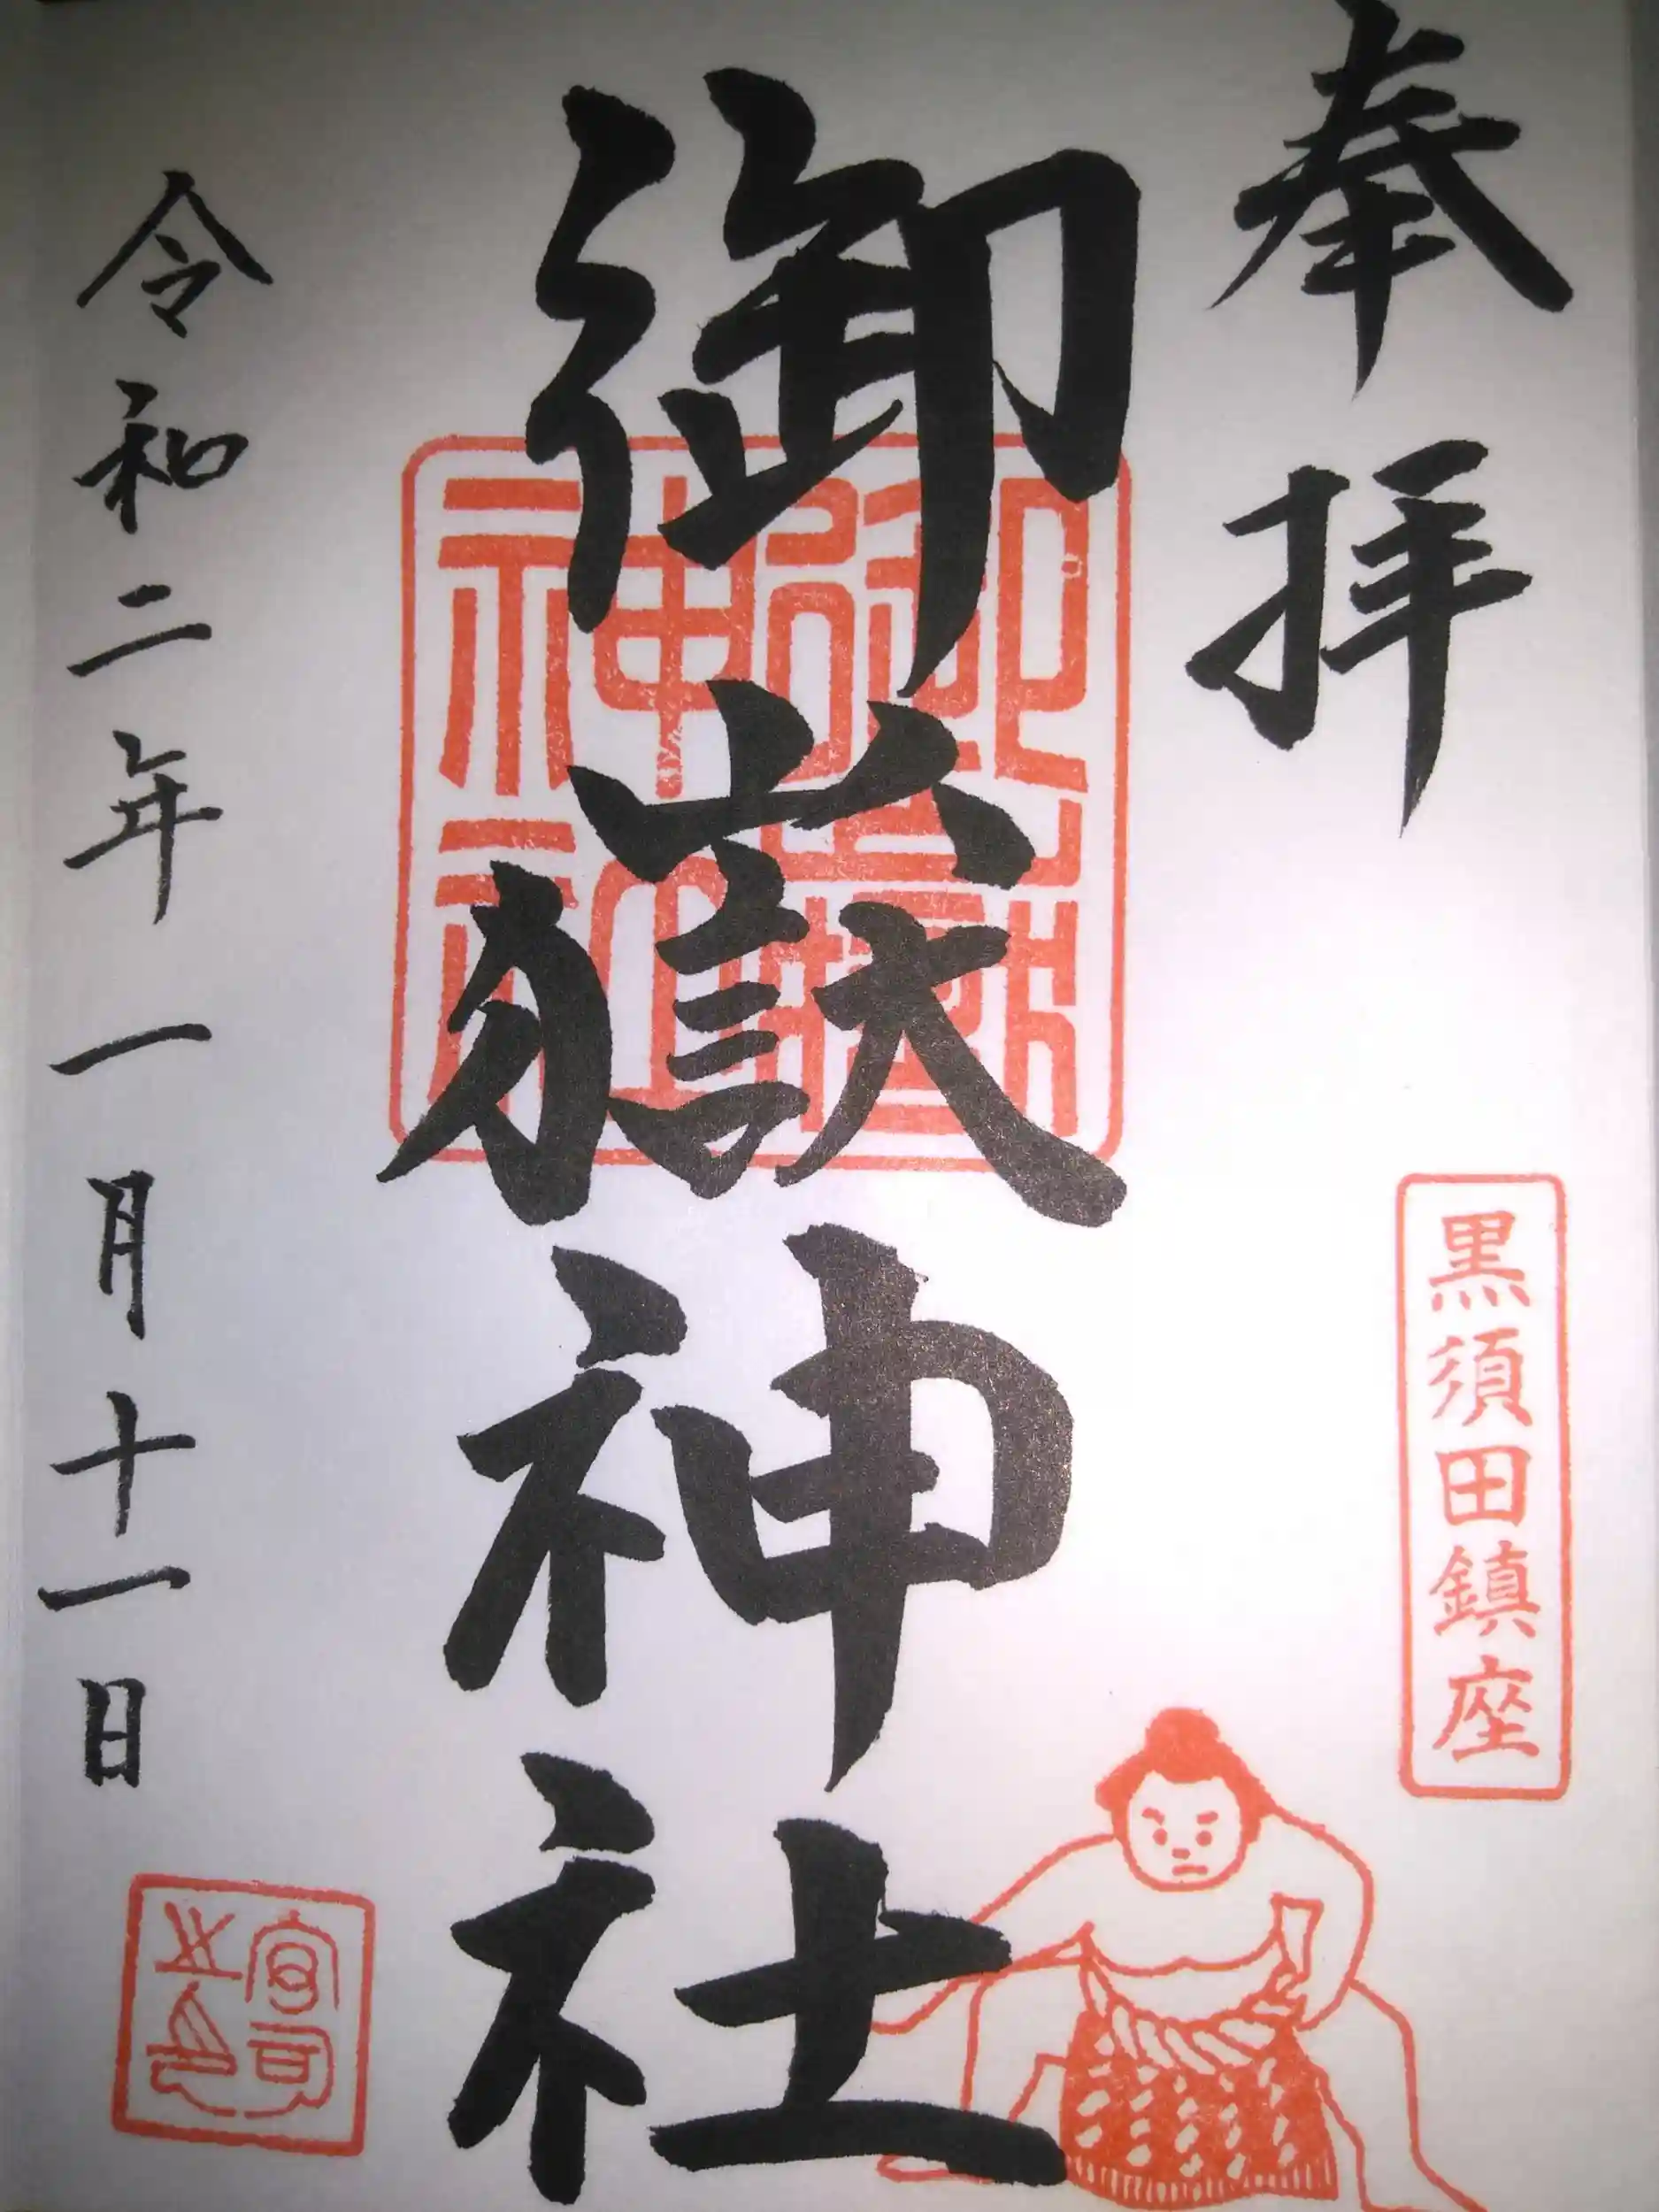 奉拝
黒須田鎮座
御嶽神社
御嶽
神社
令和二年一月十一日
宮司
之印